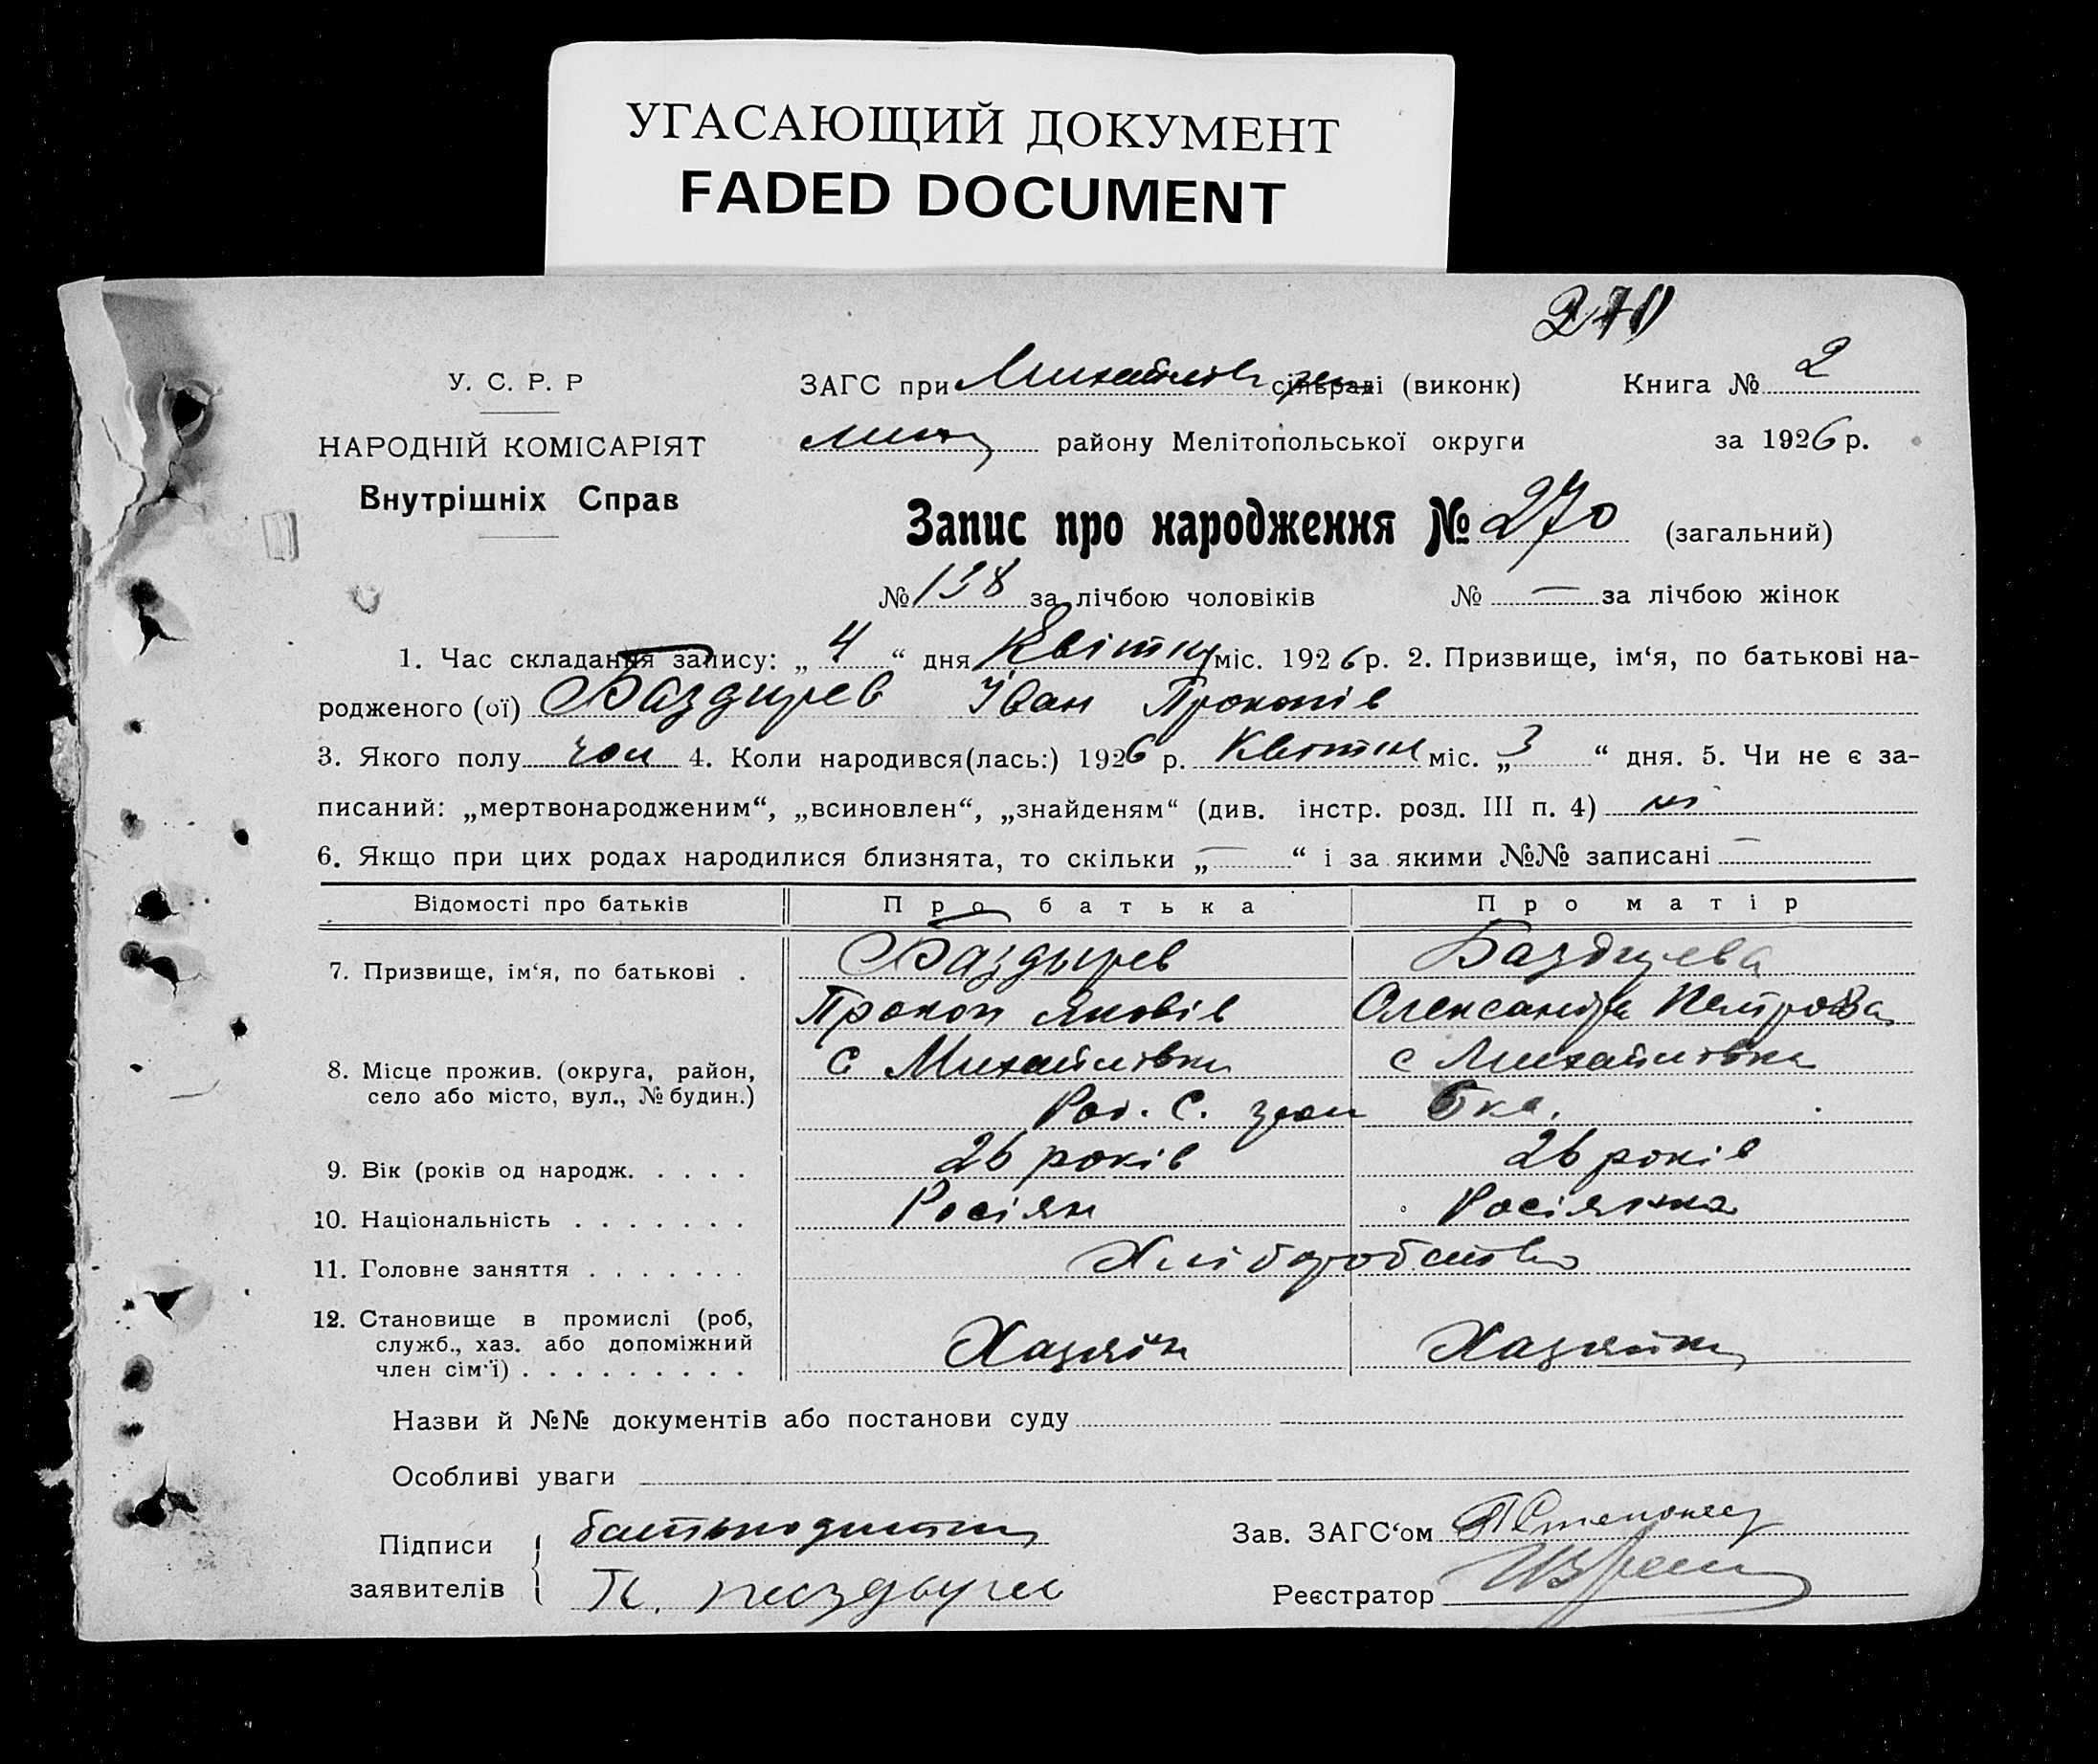 УГАСАЮЩИЙ ДОКУМЕНТ
FADED DOCUMENT
270
У. С. Р. Р
НАРОДНІЙ КОМІСАРІЯТ
Внутрішніх Справ
ЗАГС при Михайлів сільраді (виконк) Книга № 2
району Мелітопольської округи за 1926 р.
Запис про народження № 270 (загальний)
№ 138 за лічбою чоловіків № — за лічбою жінок
1. Час складання запису: „ 4 “ дня Квітня міс. 1926 р. 2. Призвище, ім‘я, по батькові на-
родженого (ої) Баздирев Іван Прокопів
3. Якого полу чол 4. Коли народився(лась:) 1926 р. Квітня міс. „ 3 “ дня. 5. Чи не є за-
писаний: „мертвонародженим“, „всиновлен“, „знайденям“ (див. інстр. розд. III п. 4) ні
6. Якщо при цих родах народилися близнята, то скільки „ — “ і за якими №№ записані —
Відомості про батьків Про батька Про матір
7. Призвище, ім‘я, по батькові . Баздырев Баздирева
Прокоп Яковів Олександра Петрова
8. Місце прожив. (округа, район, с Михайлівка с Михайлівка
село або місто, вул., № будин.)
9. Вік (років од народж. . . . . 26 років 26 років
10. Національність . . . . . . . Росіян Росіянка
11. Головне заняття . . . . . . . Хліборобство
12. Становище в промислі (роб,
служб., хаз. або допоміжний Хазяїн Хазяйка
член сім‘ї) . . . . . . . . .
Назви й №№ документів або постанови суду
Особливі уваги
Підписи батько дитини Зав. ЗАГС‘ом
заявителів Реєстратор